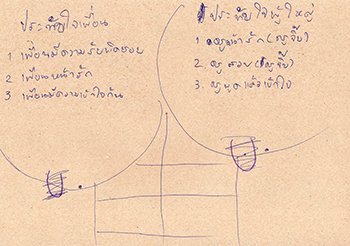 ประทับใจเพื่อน
1 เพื่อนมีความรับผิดชอบ
2 เพื่อนน่ารัก
3 เพื่อนมีความเข้าใจกัน
ประทับใจผู้ใหญ่
1. ครูน่ารัก (ครูจิ๊บ)
2. ครูสอน (ครูจิ๊บ)
3. ครูพูดแล้วเข้าใจ